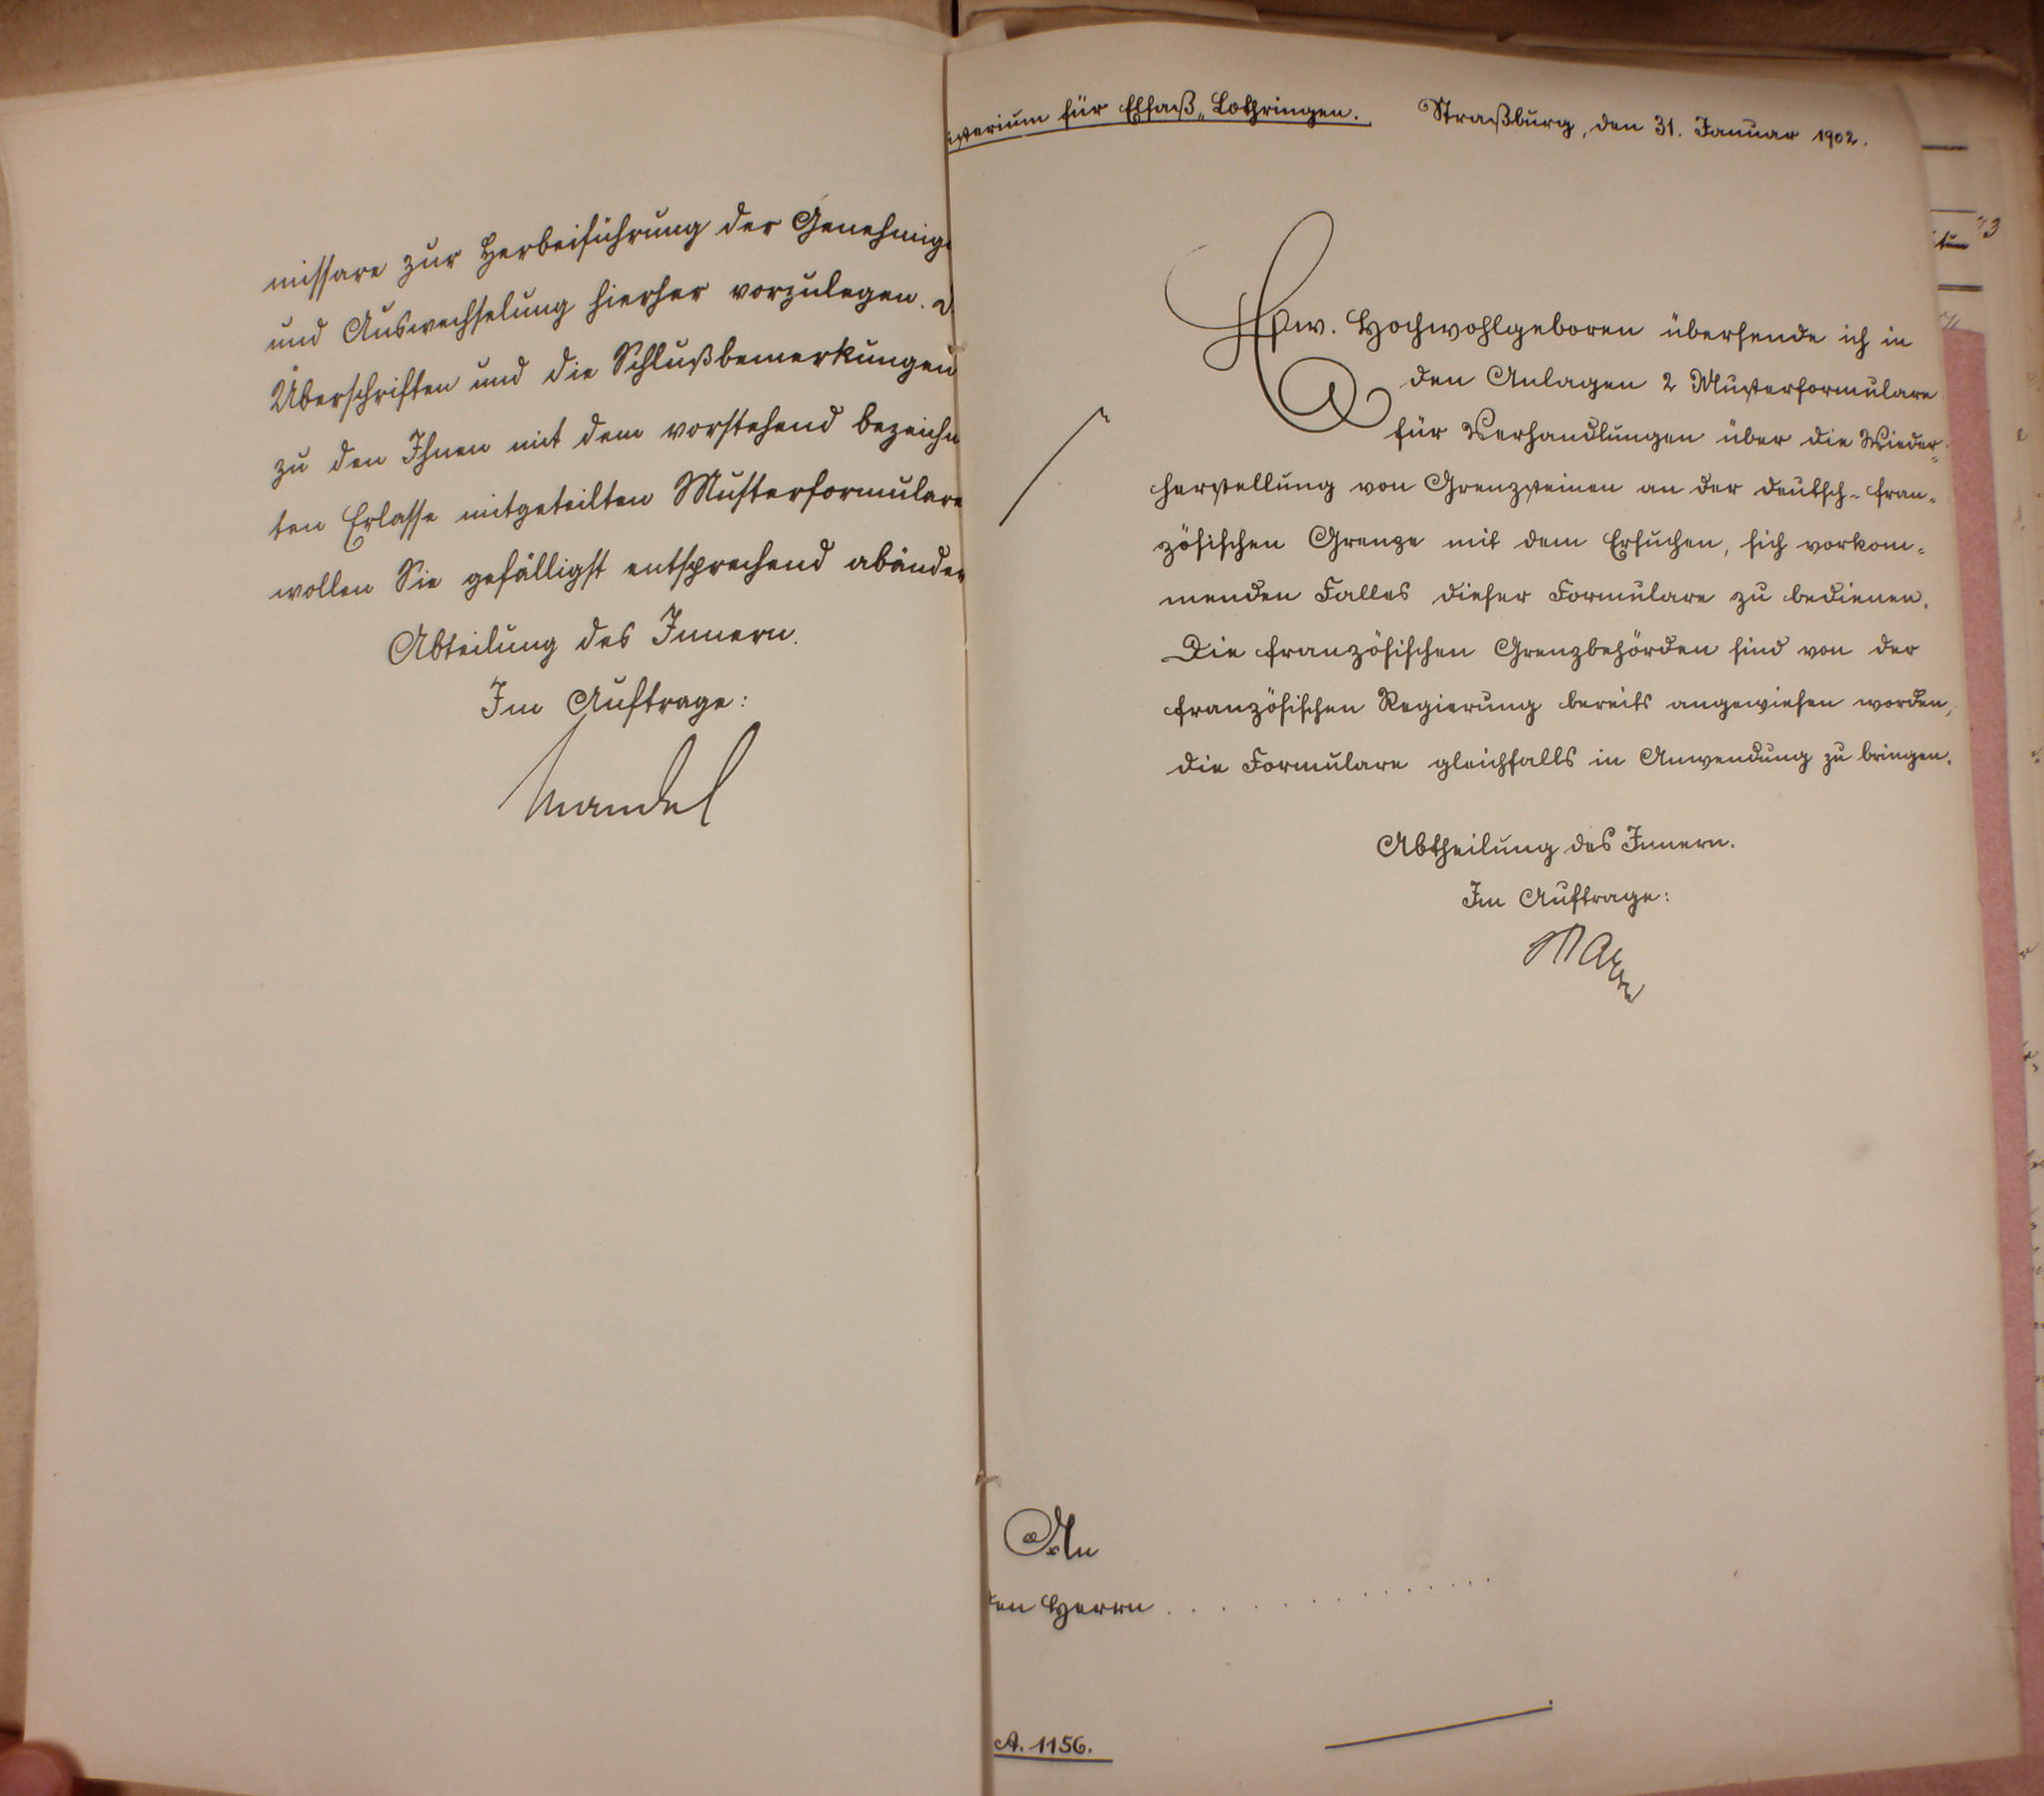 missare zur Herbeiführung der Genehmig
und Auswechselung hierher vorzulegen. D
Überschriften und die Schlußbemerkungen
zu den Ihnen mit dem vorstehend bezeichn
ten Erlasse mitgeteilten Musterformulare
wollen Sie gefälligst entsprechend abänder
Abteilung des Innern.
Im Auftrage:
Mandel
isterium für Elsaß-Lothringen. Straßburg, den 31. Januar 1902.
Ew. Hochwohlgeboren übersende ich in
den Anlagen 2 Musterformulare
für Verhandlungen über die Wieder-
herstellung von Grenzsteinen an der deutsch-fran-
zösischen Grenze mit dem Ersuchen, sich vorkom-
menden Falles dieser Formulare zu bedienen.
Die französischen Grenzbehörden sind von der
französischen Regierung bereits angewiesen worden,
die Formulare gleichfalls in Anwendung zu bringen.
Abtheilung des Innern.
Im Auftrage:
An
den Herrn . . . . . . . . . . . . .
A. 1156.